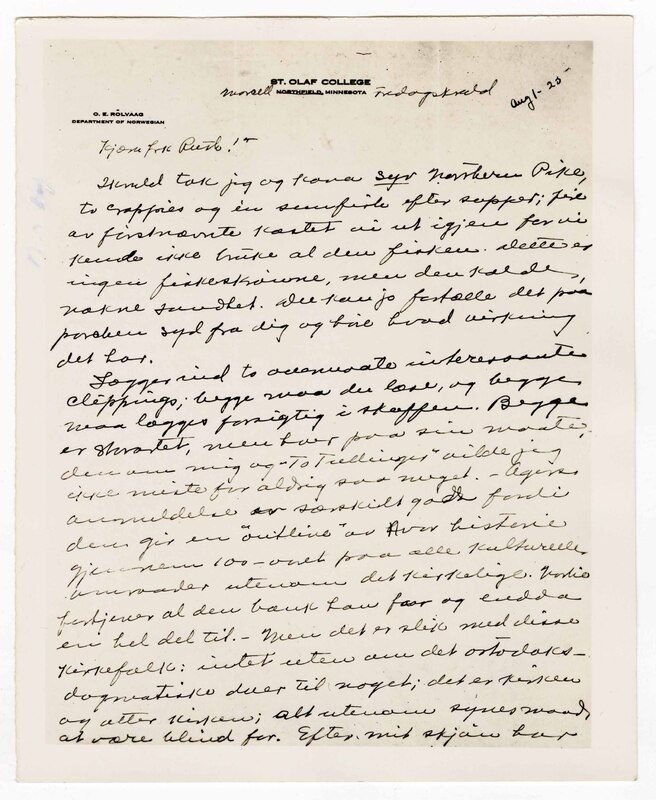 ST. OLAF COLLEGE
Marcell NORTHFIELD, MINNESOTA Fredagskveld
Aug 1 - 25
O. E. RÖLVAAG
DEPARTMENT OF NORWEGIAN
Kjære frk Ruth!
Ikveld tok jeg og kona syv Northern Pike,
to crappies og én sunfish efter supper; fire
av førstnævnte kastet vi ut igjen for vi
kunde ikke bruke al den fisken. Dette er
ingen fiskeskrøne, men den kolde,
nakne sandhet. Du kan jo fortælle det paa
porchen syd fra dig og høre hvad virkning
det har.
Lægger ind to interessante
clippings; begge maa du læse, og begge
maa lægges forsigtig i skuffen. Begge
er , men hver paa sin maate;
den om mig og "To Tullinger" vilde jeg
ikke miste for aldrig saa meget. – Agers
anmeldelse er særskilt god fordi
den gir en "outline" av vor historie
gjennem 100-aaret paa alle kulturelle
omraader utenom det kirkelige.
fortjener al den bank han faar og endda
en hel del til. – Men det er slik med disse
kirkefolk: intet uten om det ortodoks-
dogmatiske duer til noget; det er kirken
og atter kirken; alt utenom synes
at være blind for. Efter mit skjön har